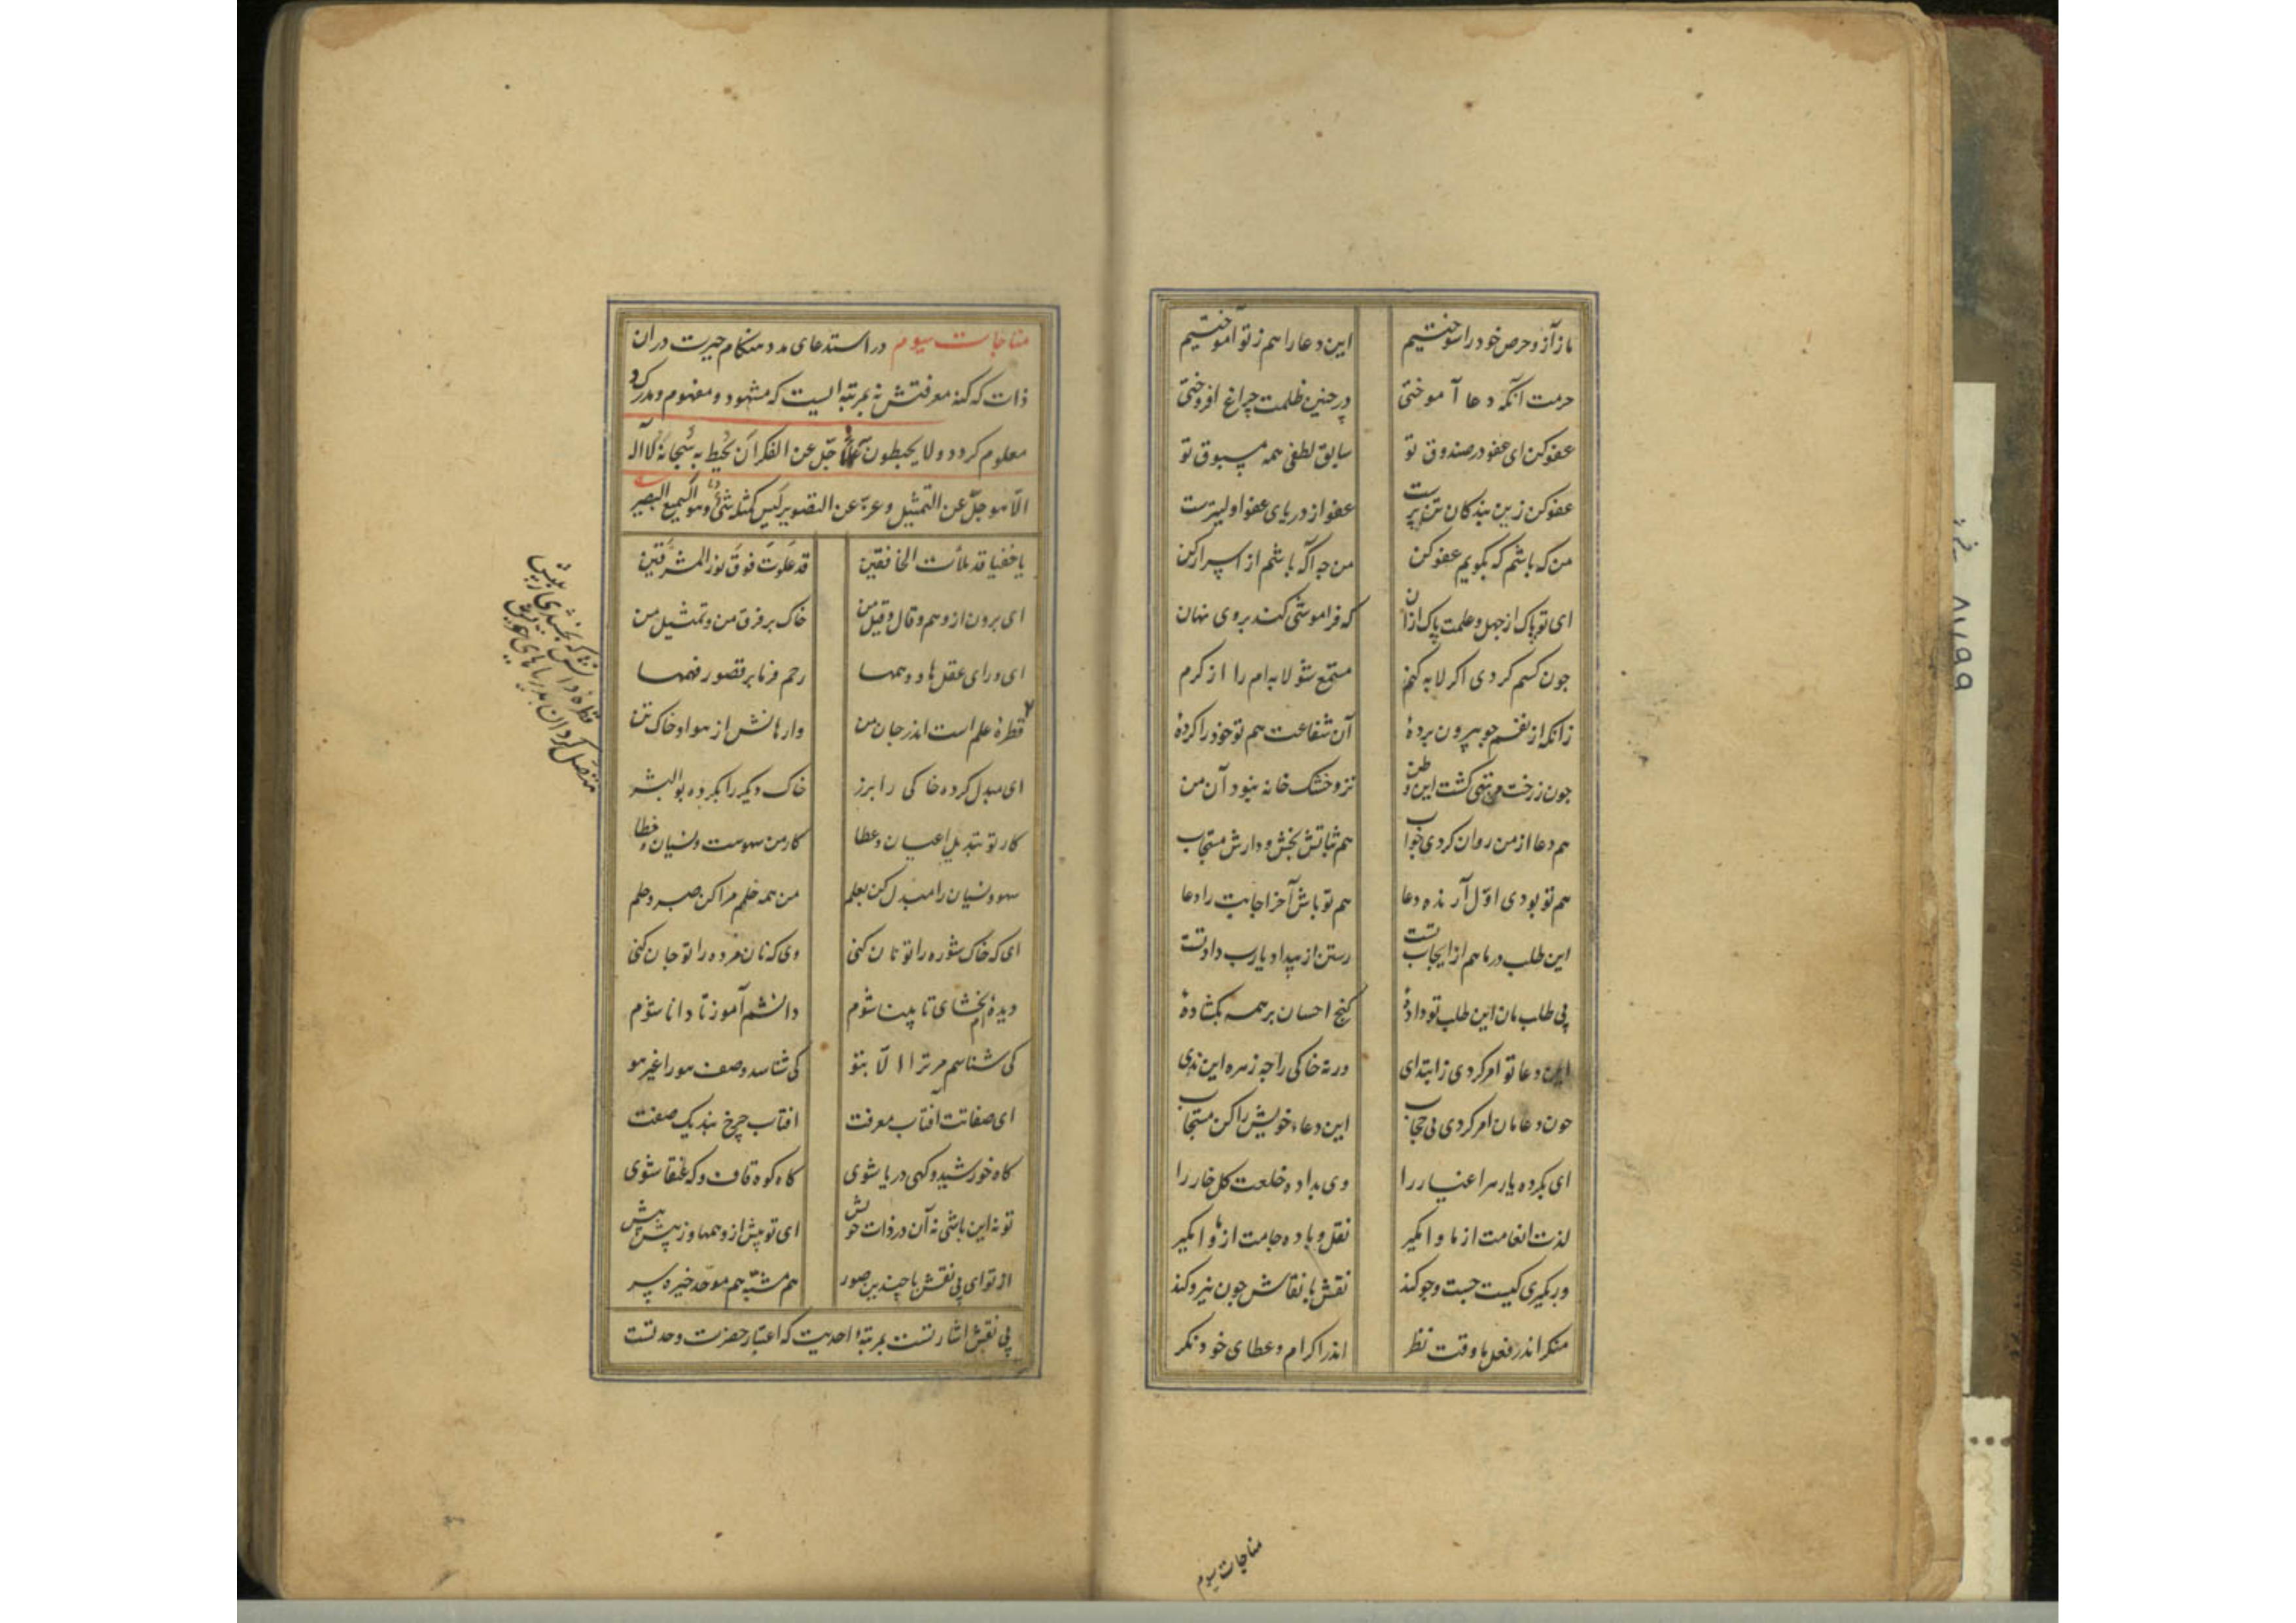 ما ز آز و حرص خود را سوختیم این دعا را هم ز تو آموختیم
حرمت آنکه دعا آموختی در چنین ظلمت چراغ افروختی
عفو کن ای عفو در صندوق تو سابق لطفی همه مسبوق تو
عفو کن زین بندکان تن پرست عفو از دریای عفو اولیترست
من که باشم که بکویم عفو کن
ای تو پاک از جهل و علمت پاک ازان که فراموشی کند بروی نهان
جون کسم کردی اکر لابه کنم مستمع شو لابه ام را از کرم
زانکه از نقسم جو بیرون برده آن شفاعت هم تو خود را کرده
جون ز رخت من تهی کشت این وطن تر و خشک خانه نبود آن من
هم دعا از من روان کردی جو آب هم ثباتش بخش و دارش مستجاب
هم تو بودی اول آرنده دعا هم تو باش آخر اجابت را دعا
این طلب در ما هم از ایجاب تست رستن از بیداد یارب داد تست
بی طلب مان این طلب تو داده کنج احسان بر همه بکشاده
این دعا تو امر کردی ز ابتدای ورنه خاکی را جه زهره این ندی
جون دعامان امر کردی بی حجاب این دعاء خویش را کن مستجاب
ای بکرده یار هر اغیار را وی بداده خلعت کل خار را
لذت انعامت از ما وا مکیر نقل و باده جامت از ما وا مکیر
ور بکیری کیست جست و جو کند نقش با نقاش جون نیرو کند
منکر اندر فعل ما وقت نظر اندر اکرام و عطای خود نکر
مناجات سیوم
مناجات سیوم در استدعای مدد هنکام حیرت دران
ذات که کنه معرفتش نه بمرتبه ایست که مشهود و مفهوم و مدرک
معلوم کردد و لا یحیطون به علما جل عن الفکر ان یحیط به سبحانه لا اله
الا هو جل عن التمثیل و عز عن التصویر لیس کمثله شیء و هو السمیع البصیر
یا خفیا قد ملأت الخافقین قد علوت فوق نور المشرقین
ای برون از وهم و قال و قیل من خاک بر فرق من و تمثیل من
ای ورای عقل ها و وهمها رحم فرما بر قصور فهمها
قطره علم است اندر جان من وارهانش از هوا و خاک تن
قطره دانش که بخشیدی ز پیش
متصل کردان بدریاهای خویش
ای مبدل کرده خاکی را بزر خاک دیکر را بکرده بوالبشر
کار تو تبدیل اعیان و عطا کار من سهوست و نسیان و خطا
سهو و نسیان را مبدل کن بعلم من همه خلمم مرا کن صبر و حلم
ای که خاک شوره را تو نان کنی وی که نان مرده را تو جان کنی
دیده ام بخشای تا بینا شوم دانشم آموز تا دانا شوم
کی شناسم مر ترا الا بتو کی شناسد وصف هو را غیر هو
ای صفاتت آفتاب معرفت افتاب چرخ بند یک صفت
کاه خورشید و کهی دریا شوی کاه کوه قاف و که عنقا شوی
تو نه این باشی نه آن در ذات خویش ای تو بیش از وهمها وز بیش بیش
از تو ای بی نقش با چندین صور هم مشبه هم موحد خیره سر
بی نقش اشارتست بمرتبه احدیت که اعتبار حضرت وحدتست
۸۷۹۹